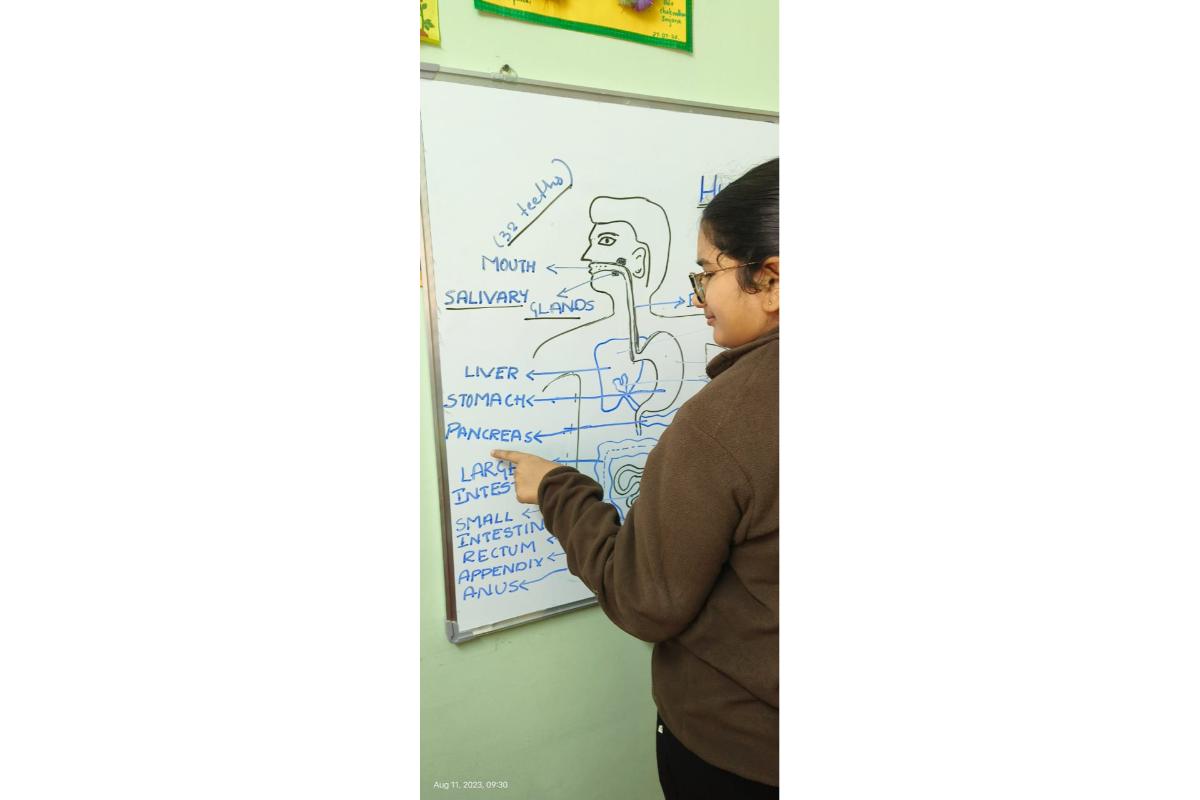 chakradhar
Srijana
27-07-23
(32 teeths)
MOUTH
SALIVARY
GLANDS
LIVER
STOMACH
PANCREAS
LARGE
INTEST
SMALL
INTESTIN
RECTUM
APPENDIX
ANUS
Aug 11, 2023, 09:30